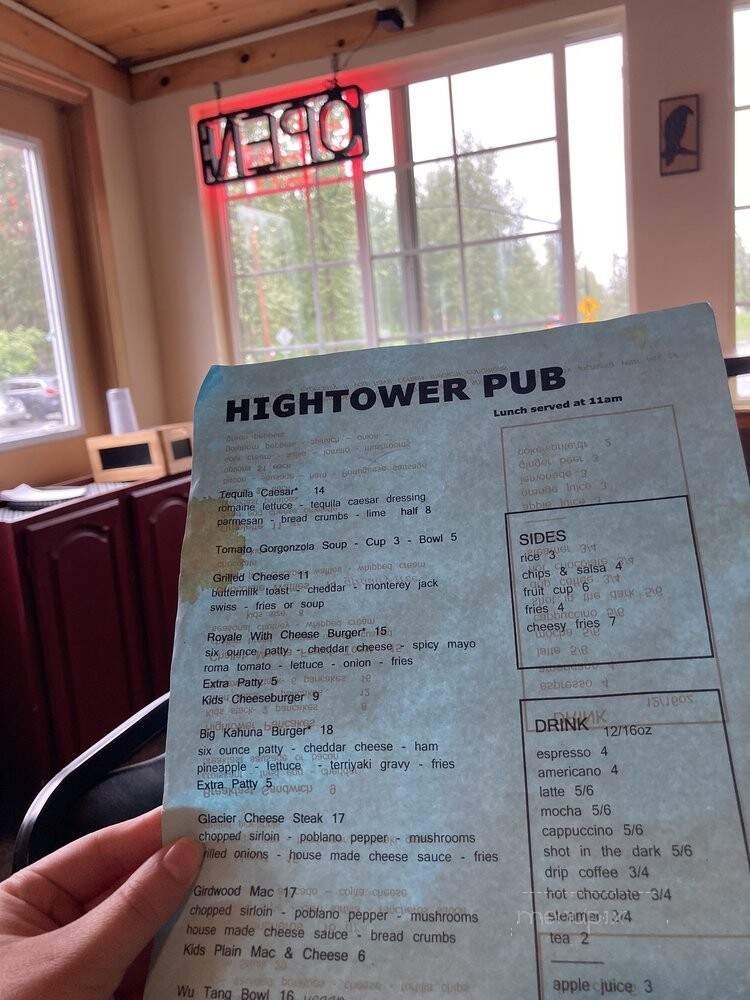 OPEN
HIGHTOWER PUB
Lunch served at 11am
Tequila Caesar* 14
romaine lettuce - tequila caesar dressing
parmesan - bread crumbs - lime half 8
Tomato Gorgonzola Soup - Cup 3 - Bowl 5
Grilled Cheese 11
buttermilk toast - cheddar - monterey jack
swiss - fries or soup
Royale With Cheese Burger* 15
six ounce patty - cheddar cheese - spicy mayo
roma tomato - lettuce - onion - fries
Extra Patty 5
Kids Cheeseburger 9
Big Kahuna Burger* 18
six ounce patty - cheddar cheese - ham
pineapple - lettuce - terriyaki gravy - fries
Extra Patty 5
Glacier Cheese Steak 17
chopped sirloin - poblano pepper - mushrooms
grilled onions - house made cheese sauce - fries
Girdwood Mac 17
chopped sirloin - poblano pepper - mushrooms
house made cheese sauce - bread crumbs
Kids Plain Mac & Cheese 6
Wu Tang Bowl 16 vegan
SIDES
rice 3
chips & salsa 4
fruit cup 6
fries 4
cheesy fries 7
DRINK 12/16oz
espresso 4
americano 4
latte 5/6
mocha 5/6
cappuccino 5/6
shot in the dark 5/6
drip coffee 3/4
hot chocolate 3/4
steamer 3/4
tea 2
apple juice 3